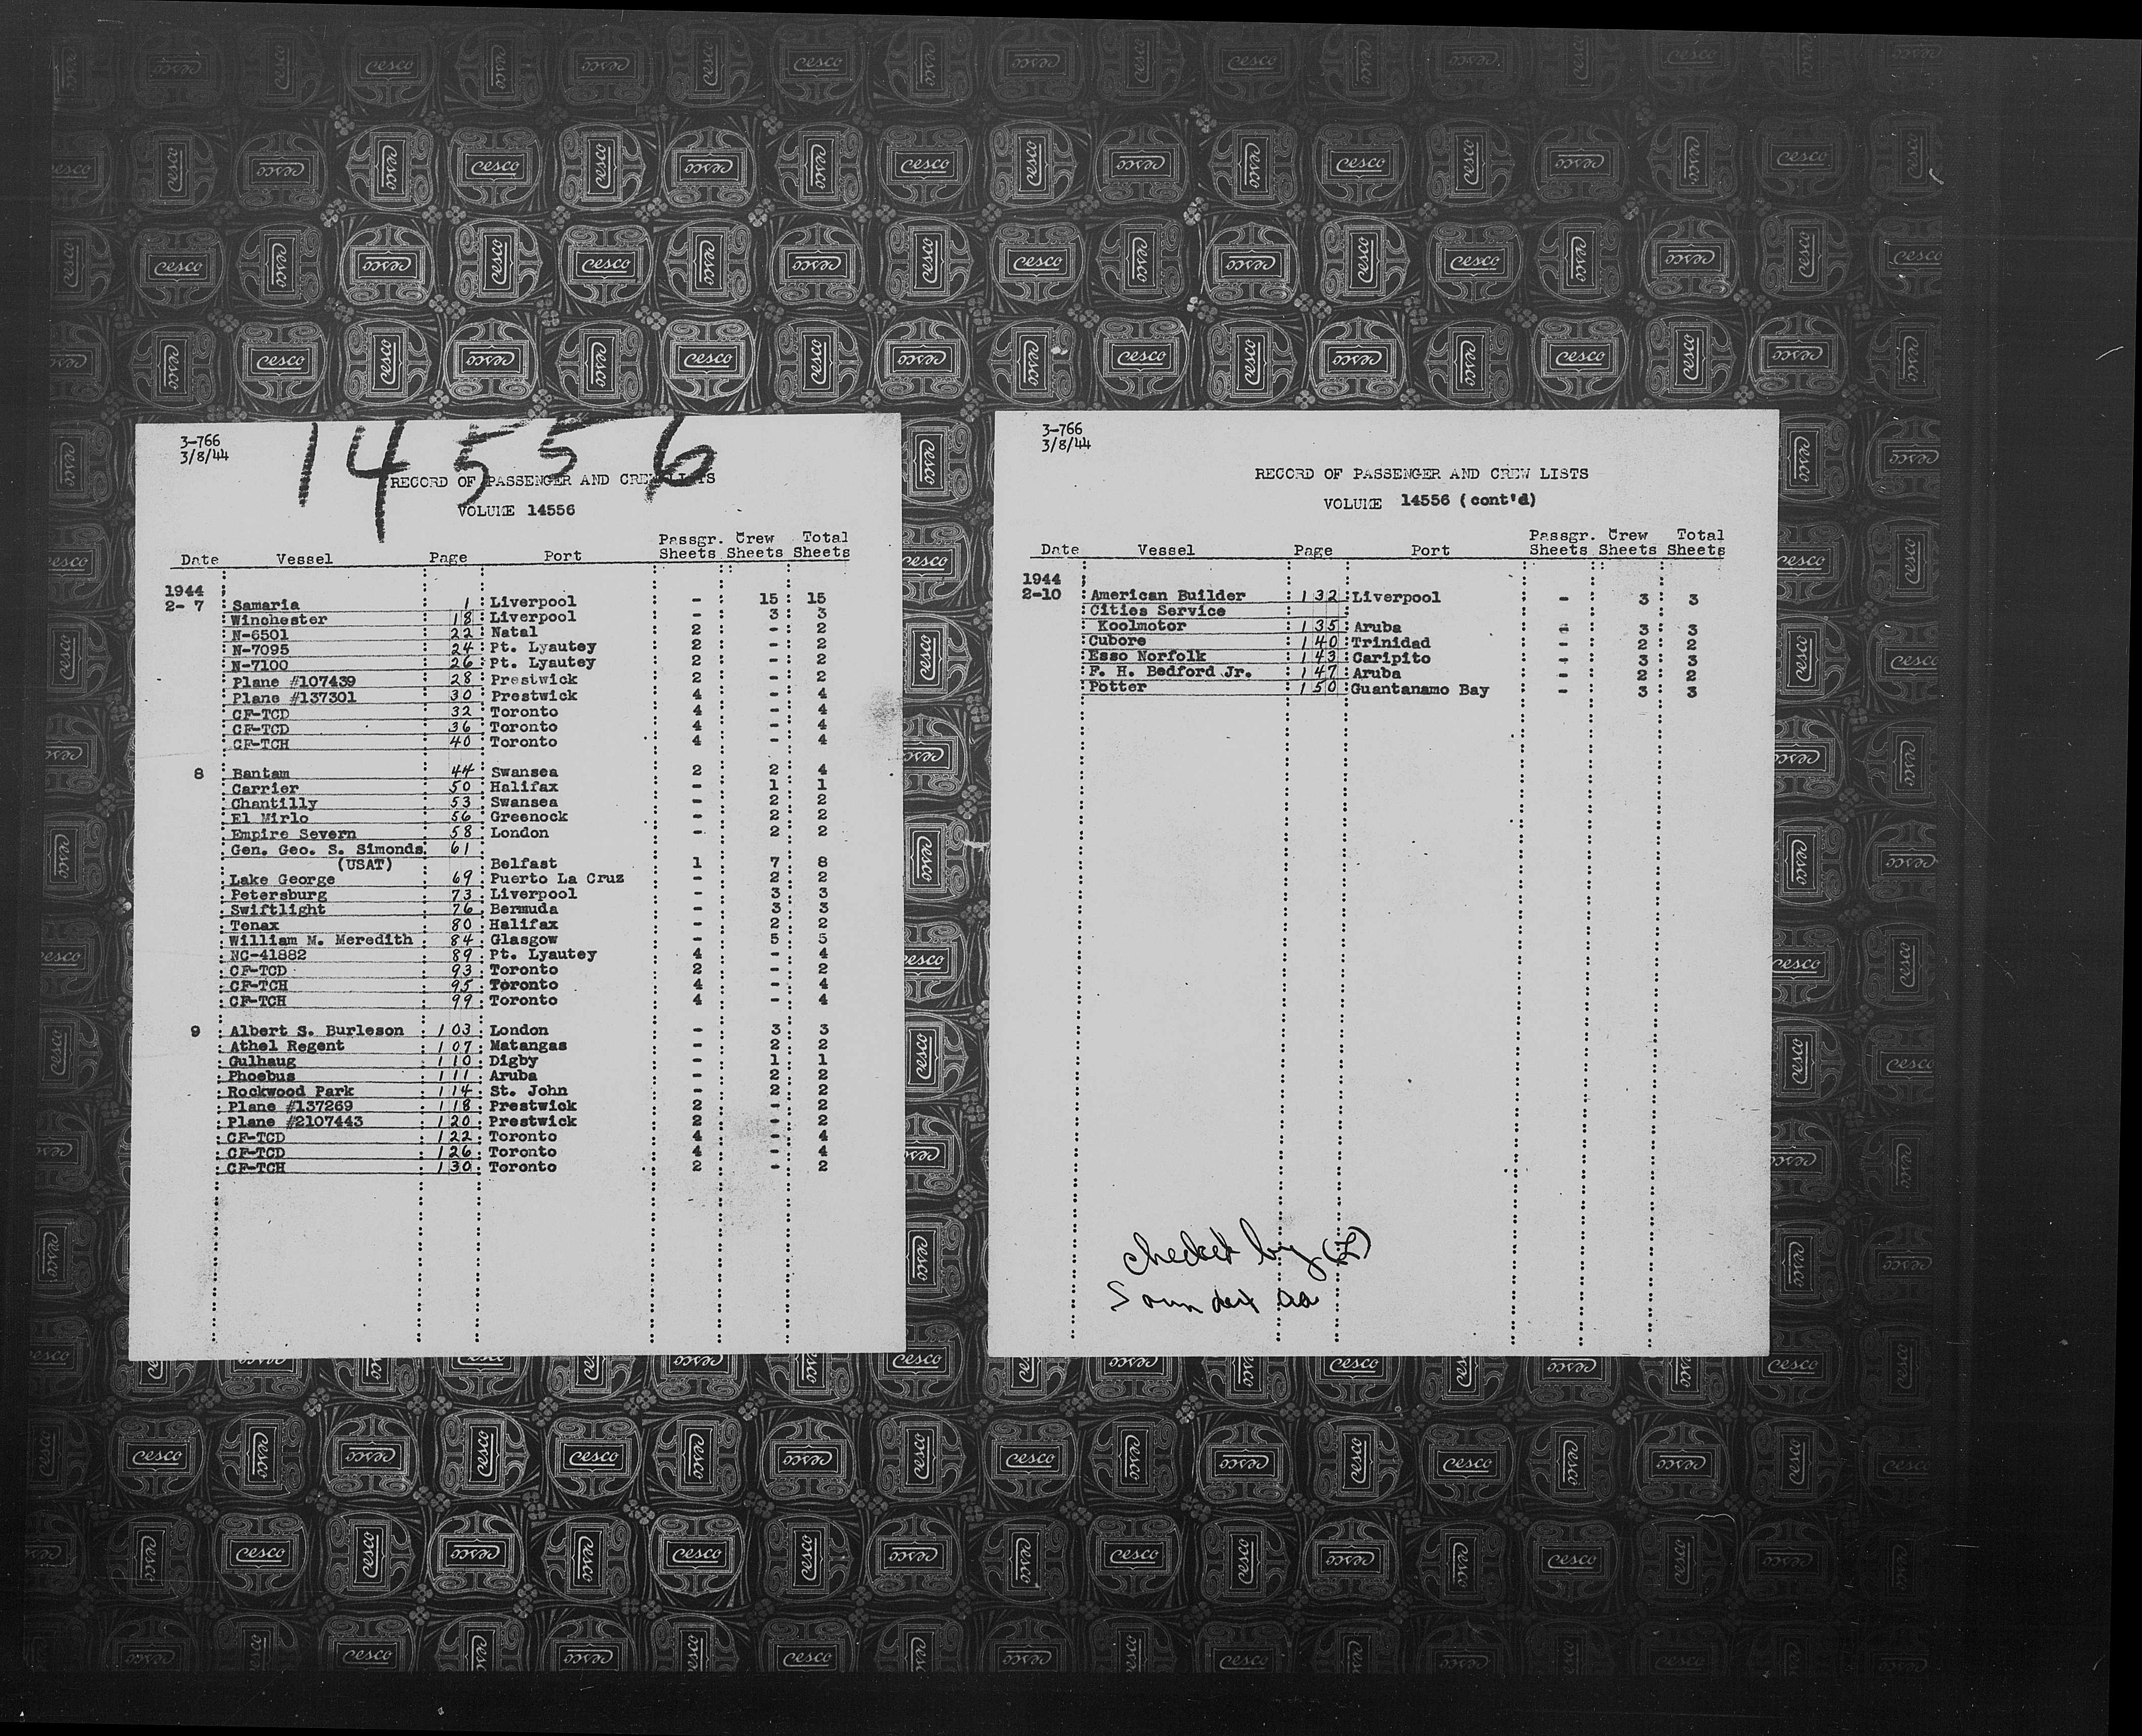 14556
3-766
3/8/44
RECORD OF PASSENGER AND CREW LISTS
VOLUME 14556
Date Vessel Page Port Passgr. Sheets Crew Sheets Total Sheets
1944
2- 7 Samaria 1 Liverpool - 15 15
Winchester 18 Liverpool - 3 3
N-6501 22 Natal 2 - 2
N-7095 24 Pt. Lyautey 2 - 2
N-7100 26 Pt. Lyautey 2 - 2
Plane #107439 28 Prestwick 2 - 2
Plane #137301 30 Prestwick 4 - 4
CF-TCD 32 Toronto 4 - 4
CF-TCD 36 Toronto 4 - 4
CF-TCH 40 Toronto 4 - 4
8 Bantam 44 Swansea 2 2 4
Carrier 50 Halifax - 1 1
Chantilly 53 Swansea - 2 2
El Mirlo 56 Greenock - 2 2
Empire Severn 58 London - 2 2
Gen. Geo. S. Simonds 61
(USAT) Belfast 1 7 8
Lake George 69 Puerto La Cruz - 2 2
Petersburg 73 Liverpool - 3 3
Swiftlight 76 Bermuda - 3 3
Tenax 80 Halifax - 2 2
William M. Meredith 84 Glasgow - 5 5
NC-41882 89 Pt. Lyautey 4 - 4
CF-TCD 93 Toronto 2 - 2
CF-TCH 95 Toronto 4 - 4
CF-TCH 99 Toronto 4 - 4
9 Albert S. Burleson 103 London - 3 3
Athel Regent 107 Matangas - 2 2
Gulhaug 110 Digby - 1 1
Phoebus 111 Aruba - 2 2
Rockwood Park 114 St. John - 2 2
Plane #137269 118 Prestwick 2 - 2
Plane #2107443 120 Prestwick 2 - 2
CF-TCD 122 Toronto 4 - 4
CF-TCD 126 Toronto 4 - 4
CF-TCH 130 Toronto 2 - 2
3-766
3/8/44
RECORD OF PASSENGER AND CREW LISTS
VOLUME 14556 (cont'd)
Date Vessel Page Port Passgr. Sheets Crew Sheets Total Sheets
1944
2-10 American Builder 132 Liverpool - 3 3
Cities Service
Koolmotor 135 Aruba - 3 3
Cubore 140 Trinidad - 2 2
Esso Norfolk 143 Caripito - 3 3
F. H. Bedford Jr. 147 Aruba - 2 2
Potter 150 Guantanamo Bay - 3 3
checked by
cesco